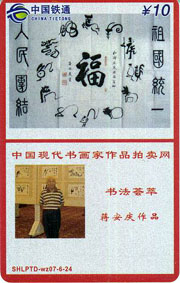 中国铁通
CHINA TIETONG
¥10
祖國統一
人民團結
福
中国现代书画家作品拍卖网
书法荟萃
蒋安庆作品
SHLPTD-wz07-6-24